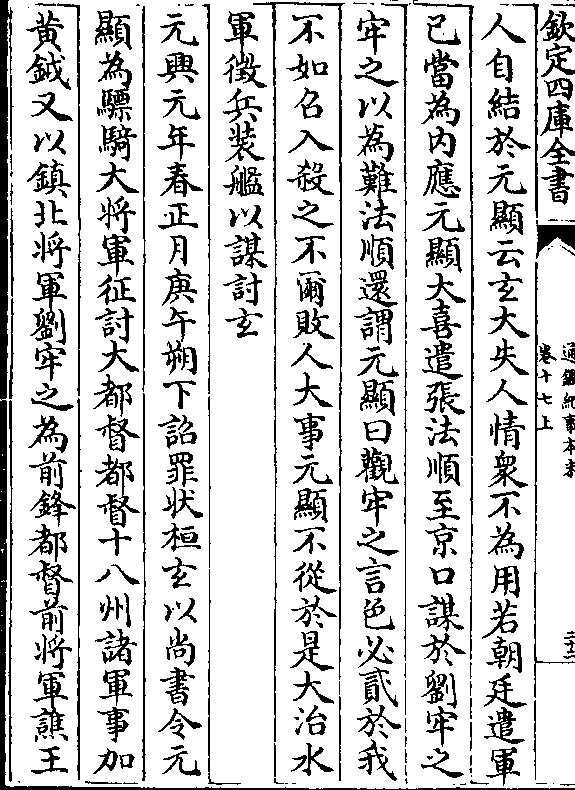 欽定四庫全書
通鑑紀事本末
卷十七上
三十二
人自結於元顯云玄大失人情衆不為用若朝廷遣軍
已當為内應元顯大喜遣張法順至京口謀於劉牢之
牢之以為難法順還謂元顯曰觀牢之言色必貳於我
不如召入殺之不爾敗人大事元顯不從於是大治水
軍徵兵装艦以謀討玄
元興元年春正月庚午朔下詔罪状桓玄以尚書令元
顯為驃騎大將軍征討大都督都督十八州諸軍事加
黄鉞又以鎮北將軍劉牢之為前鋒都督前將軍譙王